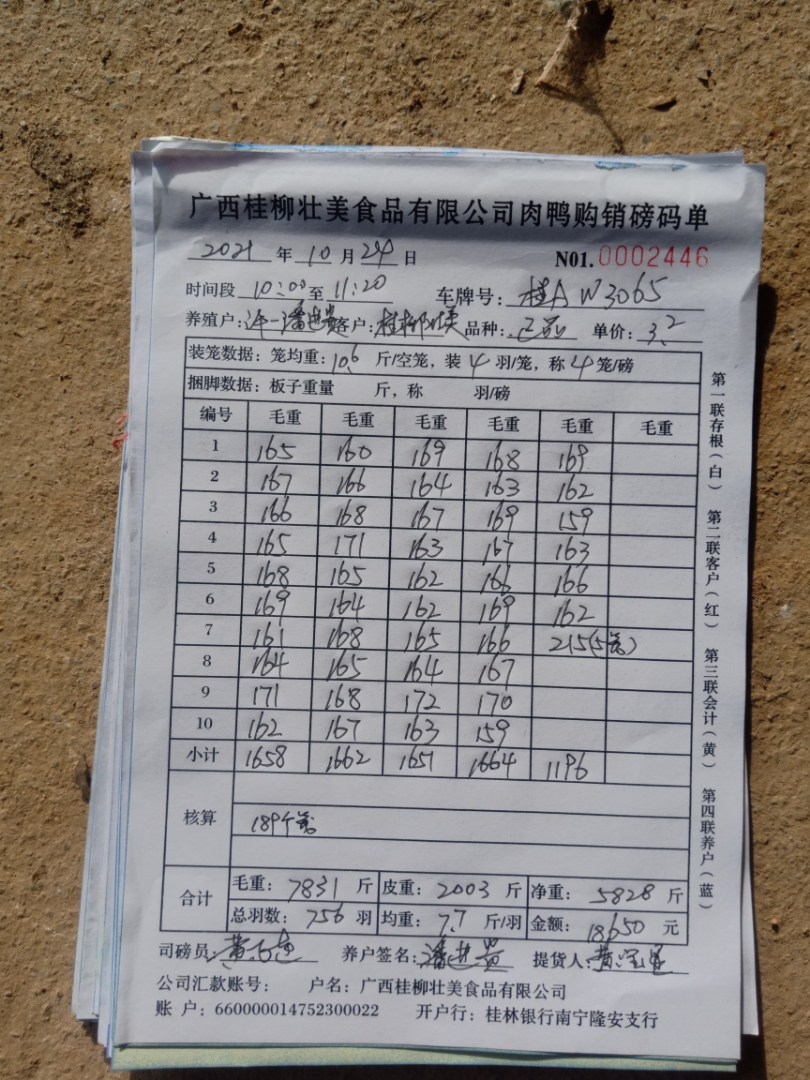 广西桂柳壮美食品有限公司肉鸭购销磅码单
2021 年 10 月 24 日 N01.0002446
时间段 10:00 至 11:20 车牌号: 桂A W3065
养殖户: 许一潘进贵 客户: 桂柳 品种: 正品 单价: 3.2
装笼数据: 笼均重: 10.6 斤/空笼, 装 4 羽/笼, 称 4 笼/磅
捆脚数据: 板子重量 斤, 称 羽/磅
编号 毛重 毛重 毛重 毛重 毛重 毛重
1 165 160 169 168 169
2 167 166 164 163 162
3 166 168 167 169 159
4 165 171 163 167 163
5 168 165 162 166 166
6 169 164 162 169 162
7 161 168 165 166 215(5笼)
8 164 165 164 167
9 171 168 172 170
10 162 167 163 159
小计 1658 1662 1651 1664 1196
核算 189个笼
合计 毛重: 7831 斤 皮重: 2003 斤 净重: 5828 斤
总羽数: 756 羽 均重: 7.7 斤/羽 金额: 18650 元
司磅员: 养户签名: 潘进贵 提货人:
公司汇款账号: 户名: 广西桂柳壮美食品有限公司
账 户: 660000014752300022 开户行: 桂林银行南宁隆安支行
第一联存根(白) 第二联客户(红) 第三联会计(黄) 第四联养户(蓝)